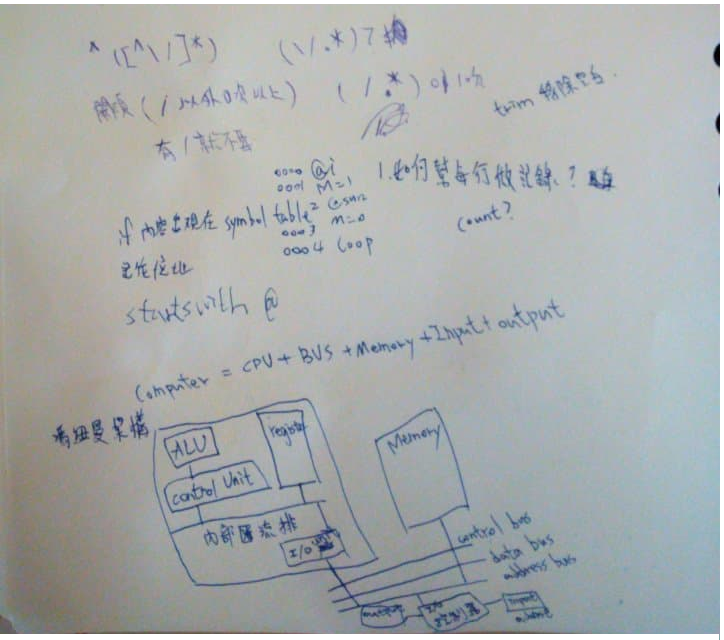 ^([^\/]*) (\/.*)?
開頭(/以外0次以上) (/.*)0或1次
有/就不要
trim 移除空白.
0000 @i
0001 M=1
2 @sum
0003 M=0
0004 Loop
1.如何幫每行做記錄?
count?
if 內容出現在 symbol table
記作位址
startswith @
Computer = CPU + BUS + Memory + Input + output
馮紐曼架構
ALU
register
control Unit
內部匯流排
I/O
Memory
control bus
data bus
address bus
控制器